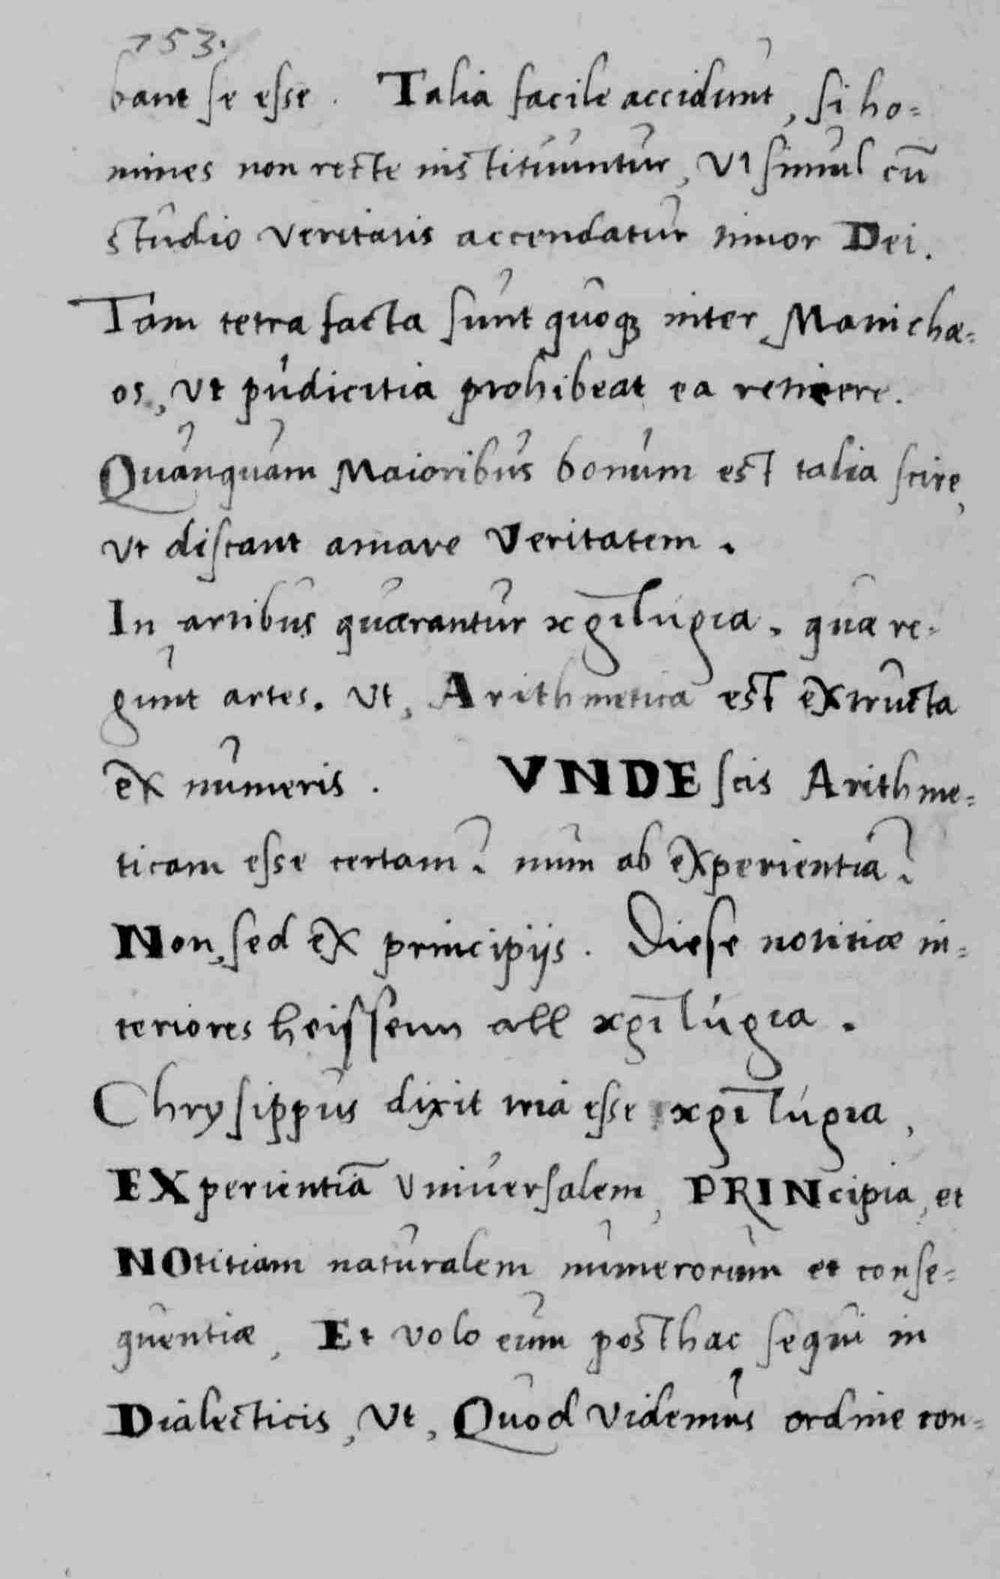 753.
bant se esse. Talia facile accidunt, si ho=
mines non recte instituuntur, Vt simul cū
studio veritatis accendatur timor Dei.
Tam tetra facta sunt quoqꝫ inter Manichæ=
os, Vt pudicitia prohibeat ea reticere.
Quanquam Maioribus bonum est talia scire,
Vt discant amare Veritatem.
In artibus quærantur κριτήρια. quæ re=
gunt artes. Vt, Arithmetica est extructa
ex numeris. VNDE scis Arithme=
ticam esse certam? num ab experientia?
Non, sed ex principijs. Diese notitiæ in=
teriores heissenn all κριτήρια.
Chrysippus dixit tria esse κριτήρια,
EXperientiā Vniuersalem, PRINcipia, et
NOtitiam naturalem numerorum et conse=
quentiæ, Et volo eum posthac sequi in
Dialecticis, Vt, Quod Videmus ordine con=